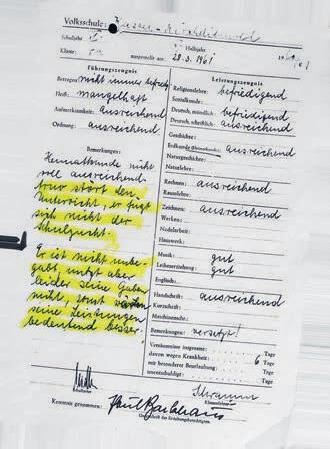 Volksschule:
Schuljahr Halbjahr
Klasse: ausgestellt am: 28.3.1961
Führungszeugnis
Betragen: nicht immer befriedig
Fleiß: mangelhaft
Aufmerksamkeit: ausreichend
Ordnung: ausreichend
Bemerkungen:
Heimatkunde nicht
voll ausreichend.
stört den
Unterricht, er fügt
sich nicht der
Schulzucht.
Er ist nicht unbe-
gabt, nutzt aber
leider seine Gaben
nicht, sonst wären
seine Leistungen
bedeutend besser.
Leistungszeugnis
Religionslehre: befriedigend
Sozialkunde:
Deutsch, mündlich: befriedigend
Deutsch, schriftlich: ausreichend
Geschichte:
Erdkunde ausreichend
Naturgeschichte:
Naturlehre:
Rechnen: ausreichend
Raumlehre:
Zeichnen: ausreichend
Werken:
Nadelarbeit:
Hauswerk:
Musik: gut
Leibeserziehung: gut
Englisch:
Handschrift: ausreichend
Kurzschrift:
Maschinenschr.:
Bemerkungen: versetzt!
Versäumnisse insgesamt: Tage
davon wegen Krankheit: 6 Tage
mit besonderer Beurlaubung: Tage
unentschuldigt: Tage
Schramm
Klassenlehrer
Kenntnis genommen: Paul Backhaus
Unterschrift des Erziehungsberechtigten